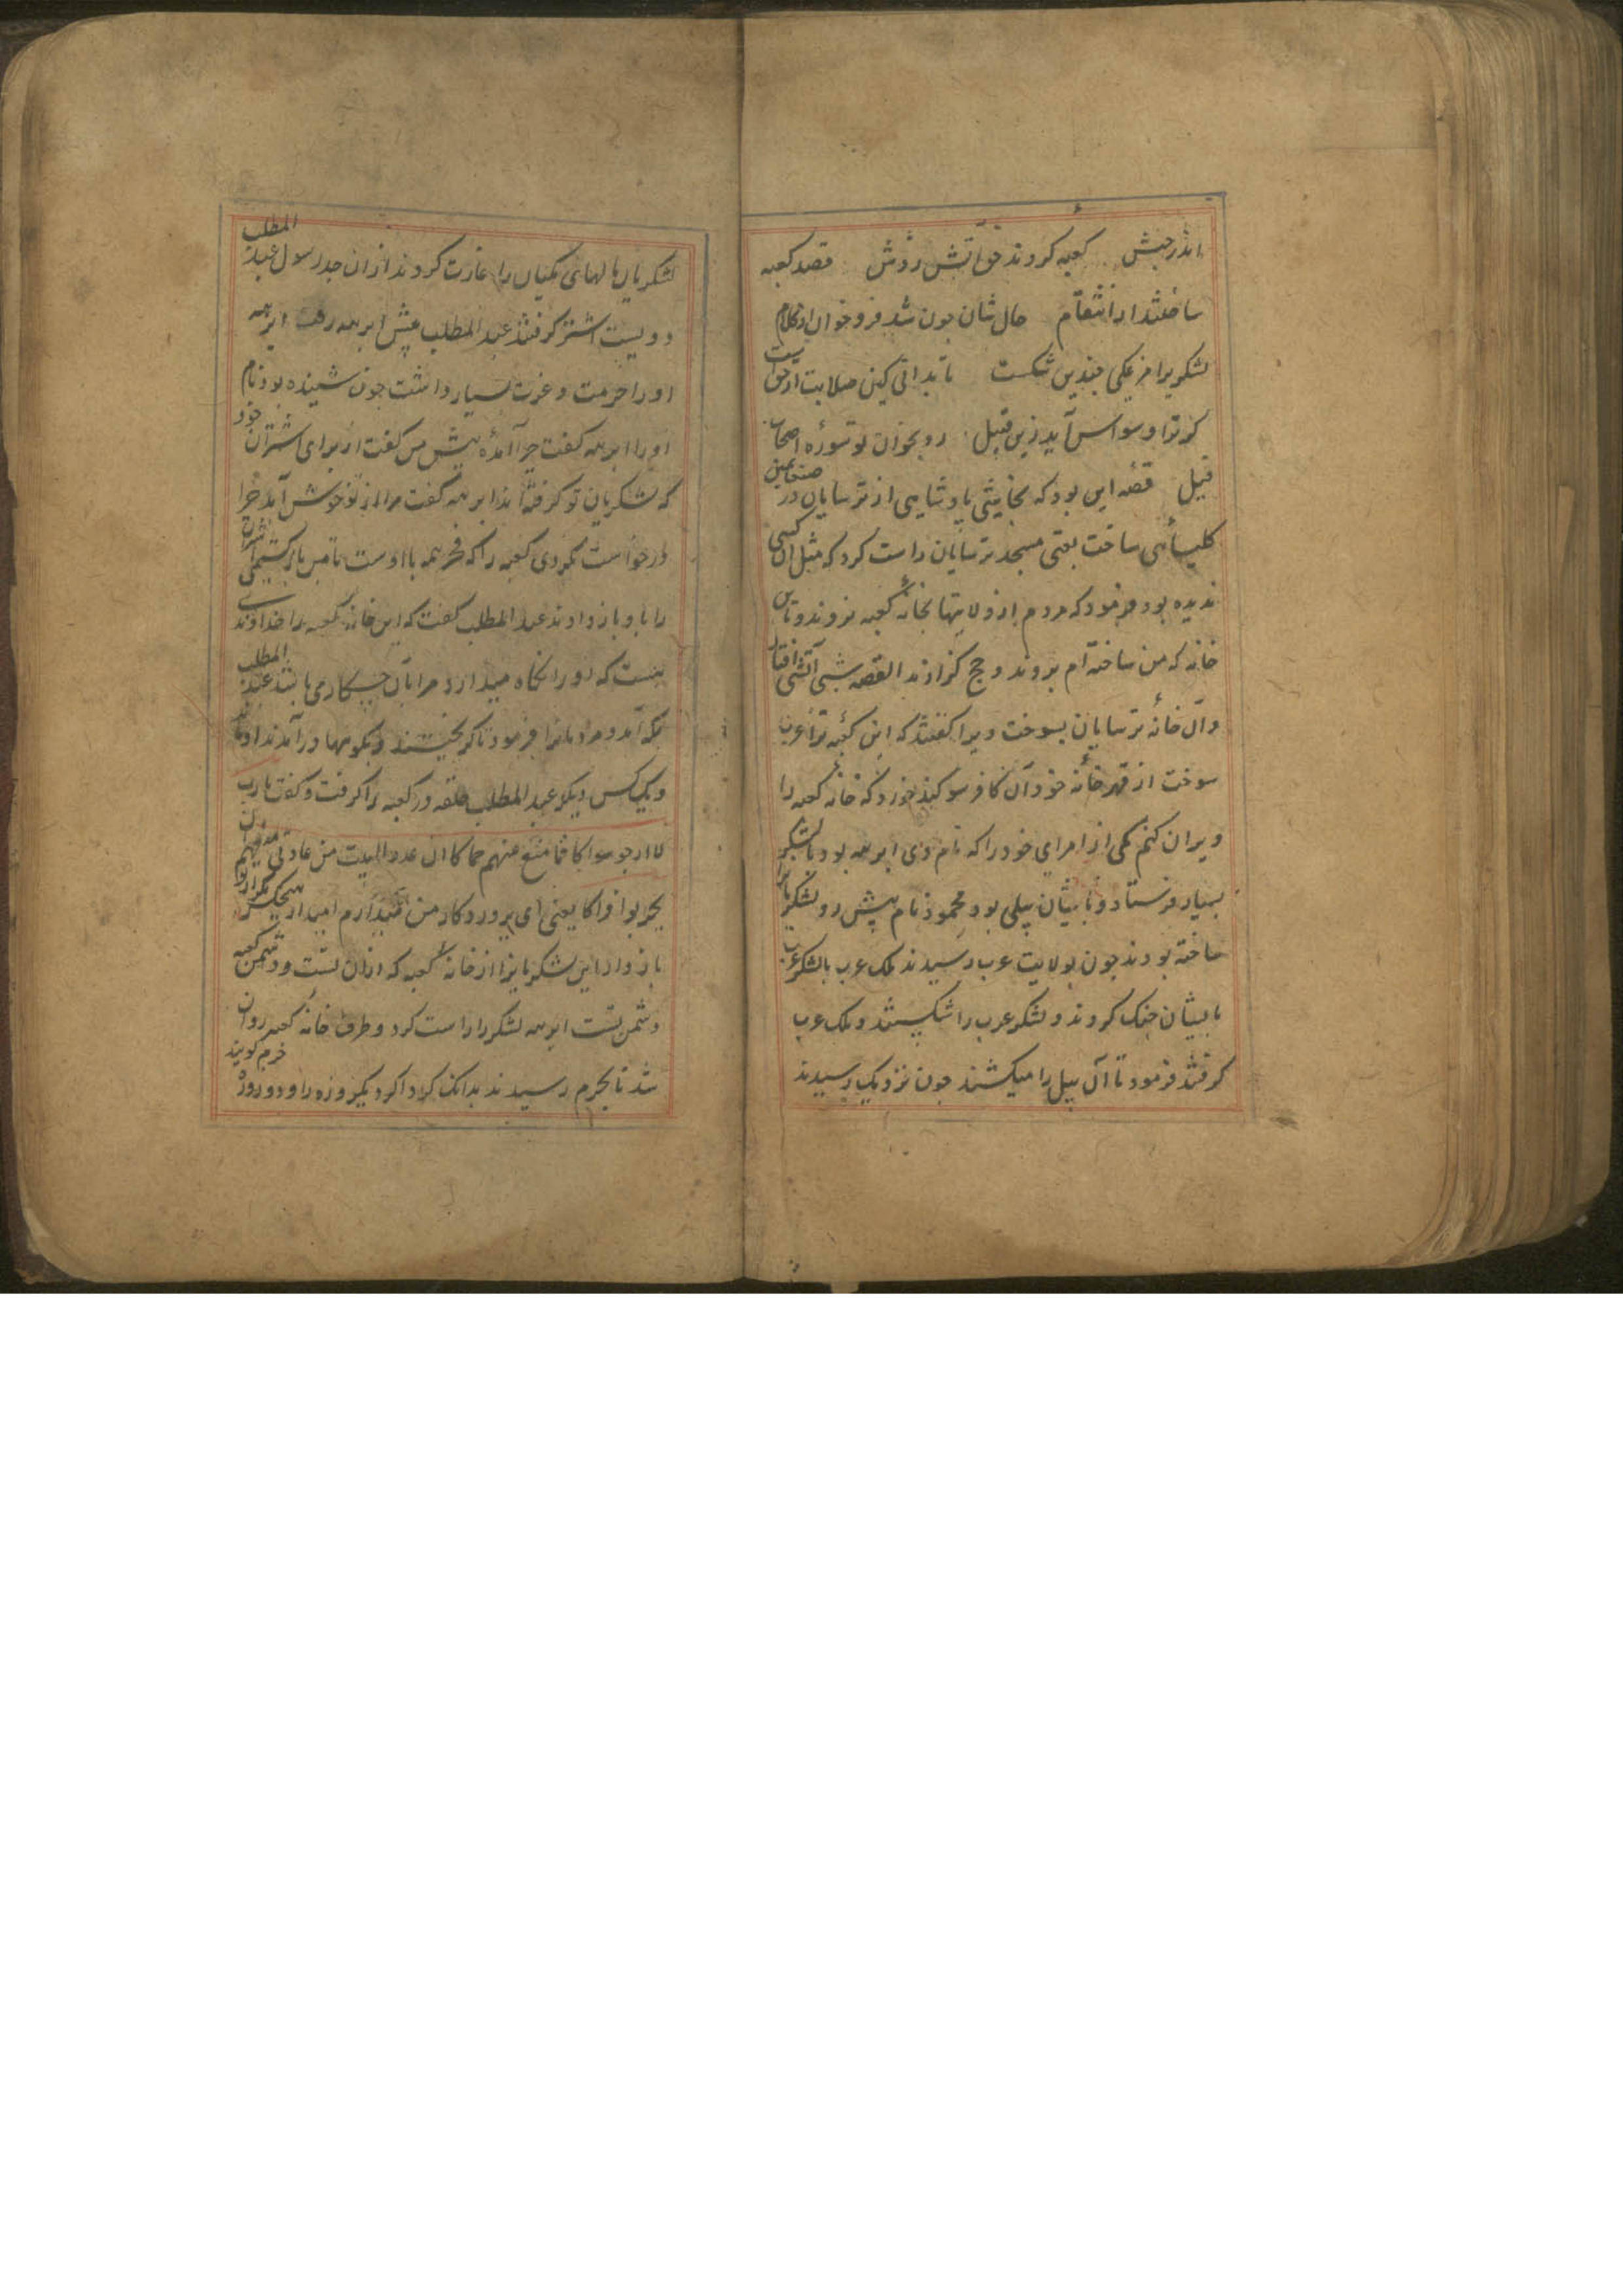 اندر حبش کعبه کردند حق آتش زدش قصد کعبه
ساختند از انتقام حال شان جون شد فرو خوان از کلام
لشکریرا مرغکی چندین شکست تا بدانی کین صلابت از حق است
کر ترا وسواس آید زین قبیل رو بخوان تو سورۀ اصحاب
فیل قصه این بود که نجاشی پادشاهی از ترسایان در صنعا یمن
کلیسائی ساخت یعنی مسجد ترسایان راست کرد که مثل آن کسی
ندیده بود فرمود که مردم از ولایتها بخانۀ کعبه نروند و باین
خانه که من ساخته ام بروند و حج کزارند القصه شبی آتشی افتاد
و آن خانۀ ترسایان بسوخت ویرا کفتند که این کعبۀ ترا عرب
سوخت از قهر خانۀ خود آن کافر سوکند خورد که خانۀ کعبه را
ویران کنم یکی از امرای خود را که نام وی ابرهه بود با لشکر
بسیار فرستاد و با ایشان پیلی بود محمود نام پیش رو لشکر
ساخته بودند جون بولایت عرب رسیدند ملک عرب با لشکر عرب
با ایشان جنک کردند و لشکر عرب را شکستند و ملک عرب
کرفتند فرمود تا آن پیل را میکشند جون نزدیک رسیدند
لشکریان مالهای مکیان را غارت کردند از ان جد رسول عبد المطلب
دویست اشتر کرفتند عبد المطلب پیش ابرهه رفت ابرهه
او را حرمت و عزت بسیار داشت جون شنیده بود نام
او را ابرهه کفت چرا آمدۀ پیش من کفت از برای اشتران خود
که لشکریان تو کرفته اند ابرهه کفت مرا از تو خوش آمد چرا
درخواست نکردی کعبه را که فخر همه با اوست تا من باز کشتمی اشتران
را باو باز دادند عبد المطلب کفت که این خانۀ کعبه را خداوندی
هست که او را نکاه میدارد مرا بآن چه کاری باشد عبد المطلب
بمکه آمد و مردمانرا فرمود تا کریختند و بکوهها در آمدند او
و یک کس دیکر عبد المطلب حلقه در کعبه را کرفت و کفت یا رب
لا ارجو سواکا فامنع عنهم حماکا ان عدو البیت من عاداکا
یخربوا فناکا یعنی ای پرورد کار من نمیدارم امید از هیچکس مکر از تو
باز دار این لشکر یانرا از خانۀ کعبه که از ان تست و دشمن کعبه
دشمن تست ابرهه لشکر را راست کرد و طرف خانۀ کعبه روان
شد تا بحرم رسیدند بدانک کرد اکرد یکروزه راه و دو روزه حرم کویند